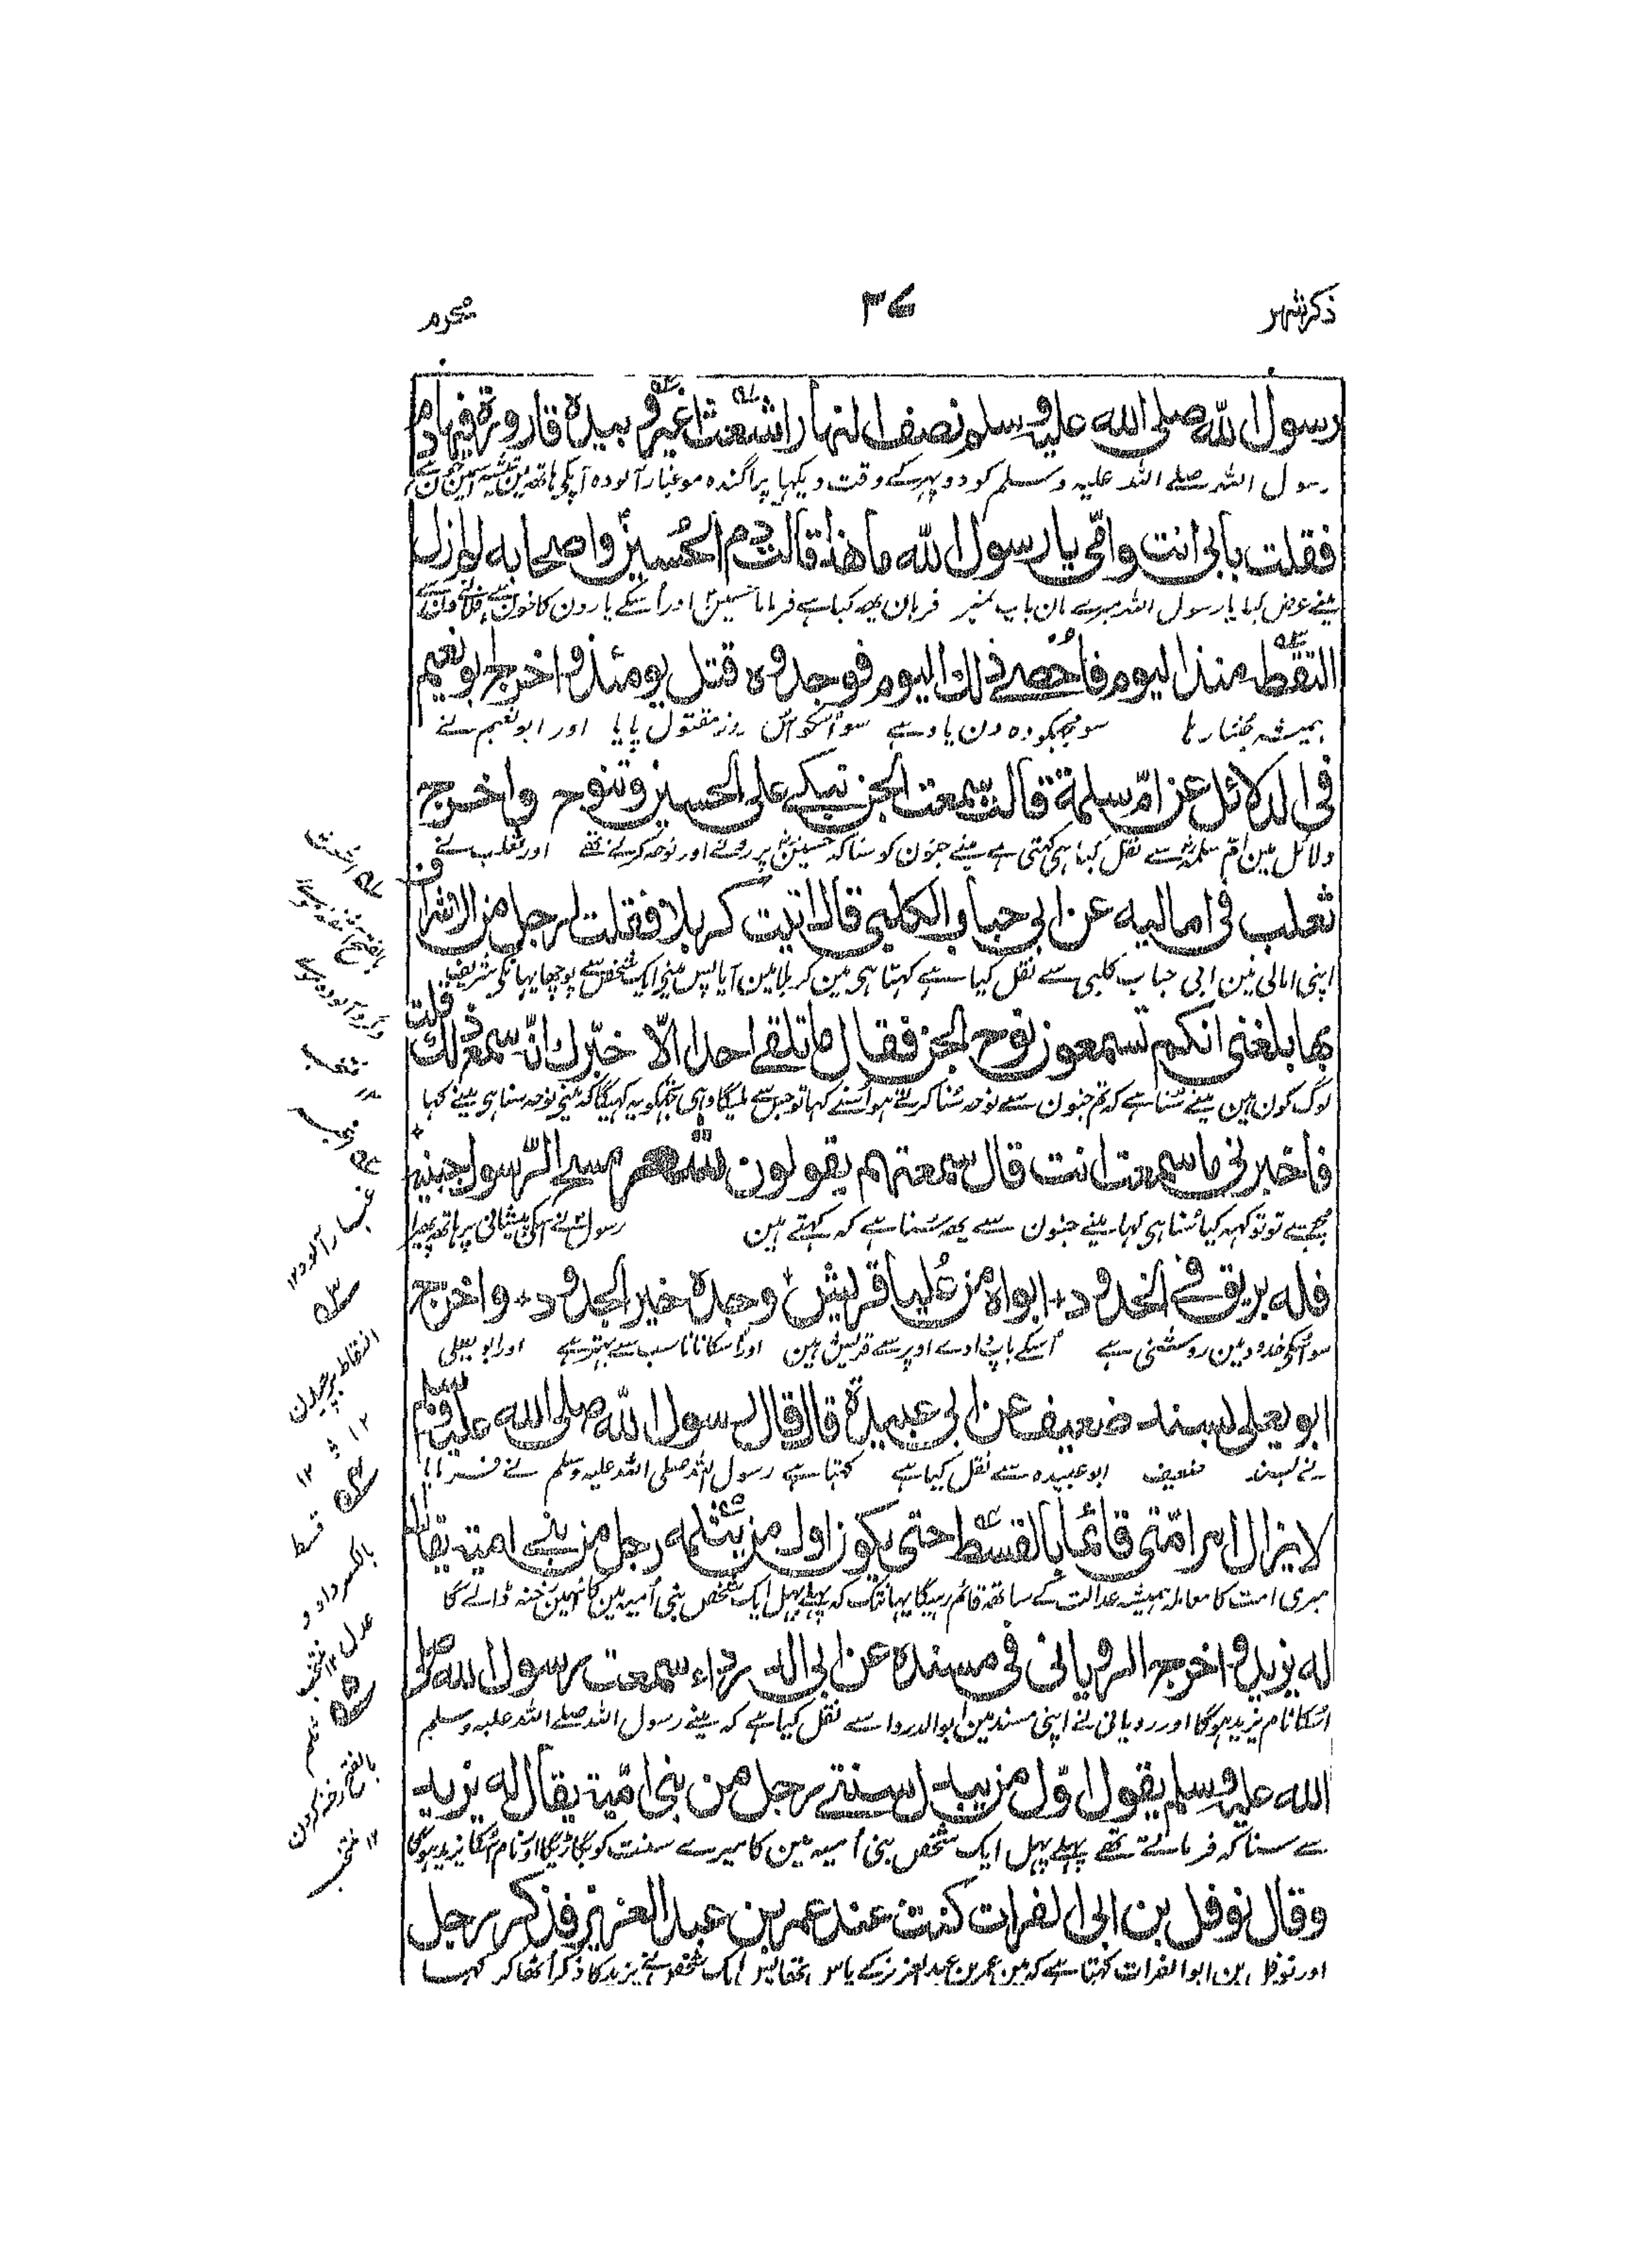 ذکر شہر
۳۷
محرم
رسول الله صلى الله عليه وسلم نصف النهار اشعث اغبر وبيده قارورة فيها دم
رسول اللہ صلے اللہ علیہ وسلم کو دوپہر کے وقت دیکہا پراگندہ مو غبار آلودہ آپکی ہاتھ مین
فقلت بابي انت وامي يا رسول الله ما هذا قالت دم الحسين واصحابه لم ازل
مینے عرض کیا یا رسول اللہ میرے مان باپ تمپر قربان یہہ کیا ہے فرمایا حسین اور اُسکے یارون کا خون ہے
التقطه منذ اليوم فاحصے ذلك اليوم فوجدوه قتل يومئذ واخرج ابو نعيم
ہمیشہ چنتا رہا سو مجھکو وہ دن یاد ہے سو اُسکو اُس روز مقتول پایا اور ابو نعیم نے
في الدلائل عن ام سلمة قالت سمعت الجن تبكے على الحسين وتنوح واخرج
دلائل مین ام سلمہ سے نقل کیا ہی کہتی ہے مینے جنون کو سنا کہ حسین پر روتے اور نوحہ کرتے تھے اور ثعلب نے
ثعلب في اماليه عن ابي حباب الكلبي قال اتيت كربلا فقلت لرجل من الاشراف
اپنی امالی مین ابی حباب کلبی سے نقل کیا ہے کہتا ہی مین کربلا مین آیا پس مینے ایک شخص سے پوچھا یہا نکی شریف
بها بلغني انكم تسمعون نوح الجن فقال ما تلقے احدا الا خبرك انه سمع ذلك قلت
لوگ کون ہین مینے سنا ہے کہ تم جنون سے نوحہ سنا کرتے ہو اُسنے کہا تو جس سے ملیگا وہی تجھکو یہ کہیگا کہ مینے نوحہ سنا ہی مینے کہا
فاخبرني ما سمعت انت قال سمعتهم يقولون شعر مسح الرسول جبينه
مجھسے تو تو کہہ کیا سنا ہی کہا مینے جنون سے یہہ سنا ہے کہ کہتے ہین رسول نے اسکی پیشانی پر ہاتھ پھیرا
فله بريق في الخدود + ابواه من عليا قريش + وجده خير الجدود + واخرج
سو اُسکی خدود مین روشنی ہے اُسکے باپ دادے اوپر سے قریش ہین اور اُسکا نانا سب سے بہتر ہے اور ابو یعلی
ابو يعلى بسند ضعيف عن ابي عبيدة قال قال رسول الله صلى الله عليه وسلم
نے بسند ضعیف ابو عبیدہ سے نقل کیا ہے کہتا ہے رسول اللہ صلی اللہ علیہ وسلم نے فرمایا
لا يزال امر امتي قائما بالقسط حتى يكون اول من يثلمه رجل من بنے امية يقال
میری امت کا معاملہ ہمیشہ عدالت کے ساتھ قائم رہیگا یہانتک کہ پہلے پہل ایک شخص بنی اُمیہ مین کا اُسمین رخنہ ڈالے گا
له يزيد واخرج الروياني في مسنده عن ابي الدرداء سمعت رسول الله صلى
اسکا نام یزید ہوگا اور رویانی نے اپنی مسند مین ابو الدردا سے نقل کیا ہے کہ مینے رسول اللہ صلے اللہ علیہ وسلم
الله عليه وسلم يقول اول من يبدل سنتے رجل من بني امية يقال له يزيد
سے سنا کہ فرماتے تھے پہلے پہل ایک شخص بنی اُمیہ مین کا میرے سنت کو بگاڑیگا اور نام اُسکا یزید ہوگا
وقال نوفل بن ابي الفرات كنت عند عمر بن عبد العزيز فذكر رجل
اور نوفل بن ابو الفرات کہتا ہے کہ مین عمر بن عبد العزیز کے پاس تھا پس ایک شخص نے یزید کا ذکر اُٹھا کر کہا
اشعث
غبار آلود ۱۲
التقاط برچیدن
۱۲
قسط
بالکسر داد و
عدل ۱۲ منتخب
ثلم
بالفتح رخنہ کردن
۱۲ منتخب